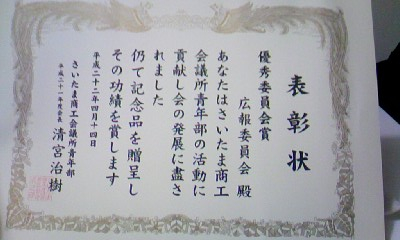 表彰状
優秀委員会賞
広報委員会 殿
あなたはさいたま商工
会議所青年部の活動に
貢献し会の発展に盡さ
れました
仍て記念品を贈呈し
その功績を賞します
平成二十二年四月十四日
さいたま商工会議所青年部
平成二十一年度会長 清宮治樹